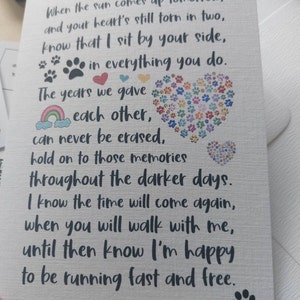 When the sun comes up tomorrow,
and your heart's still torn in two,
know that I sit by your side,
in everything you do.
The years we gave
each other,
can never be erased,
hold on to those memories
throughout the darker days.
I know the time will come again,
when you will walk with me,
until then know I'm happy
to be running fast and free.